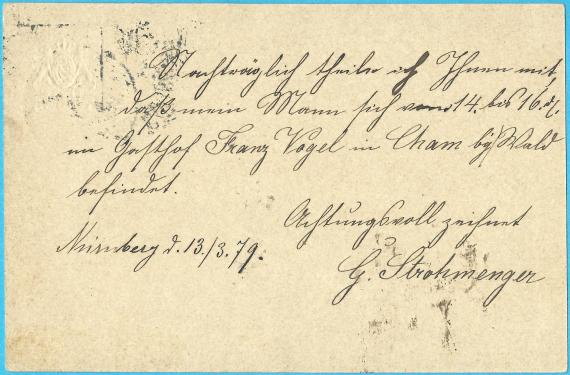 Nachträglich theile ich Ihnen mit,
daß mein Mann sich vom 14. bis 16. d/.
im Gasthof Franz Vogel in Cham by/Wald
befindet.
Achtungsvoll zeichnet
Nürnberg d. 13./3.79.
G. Strohmenger